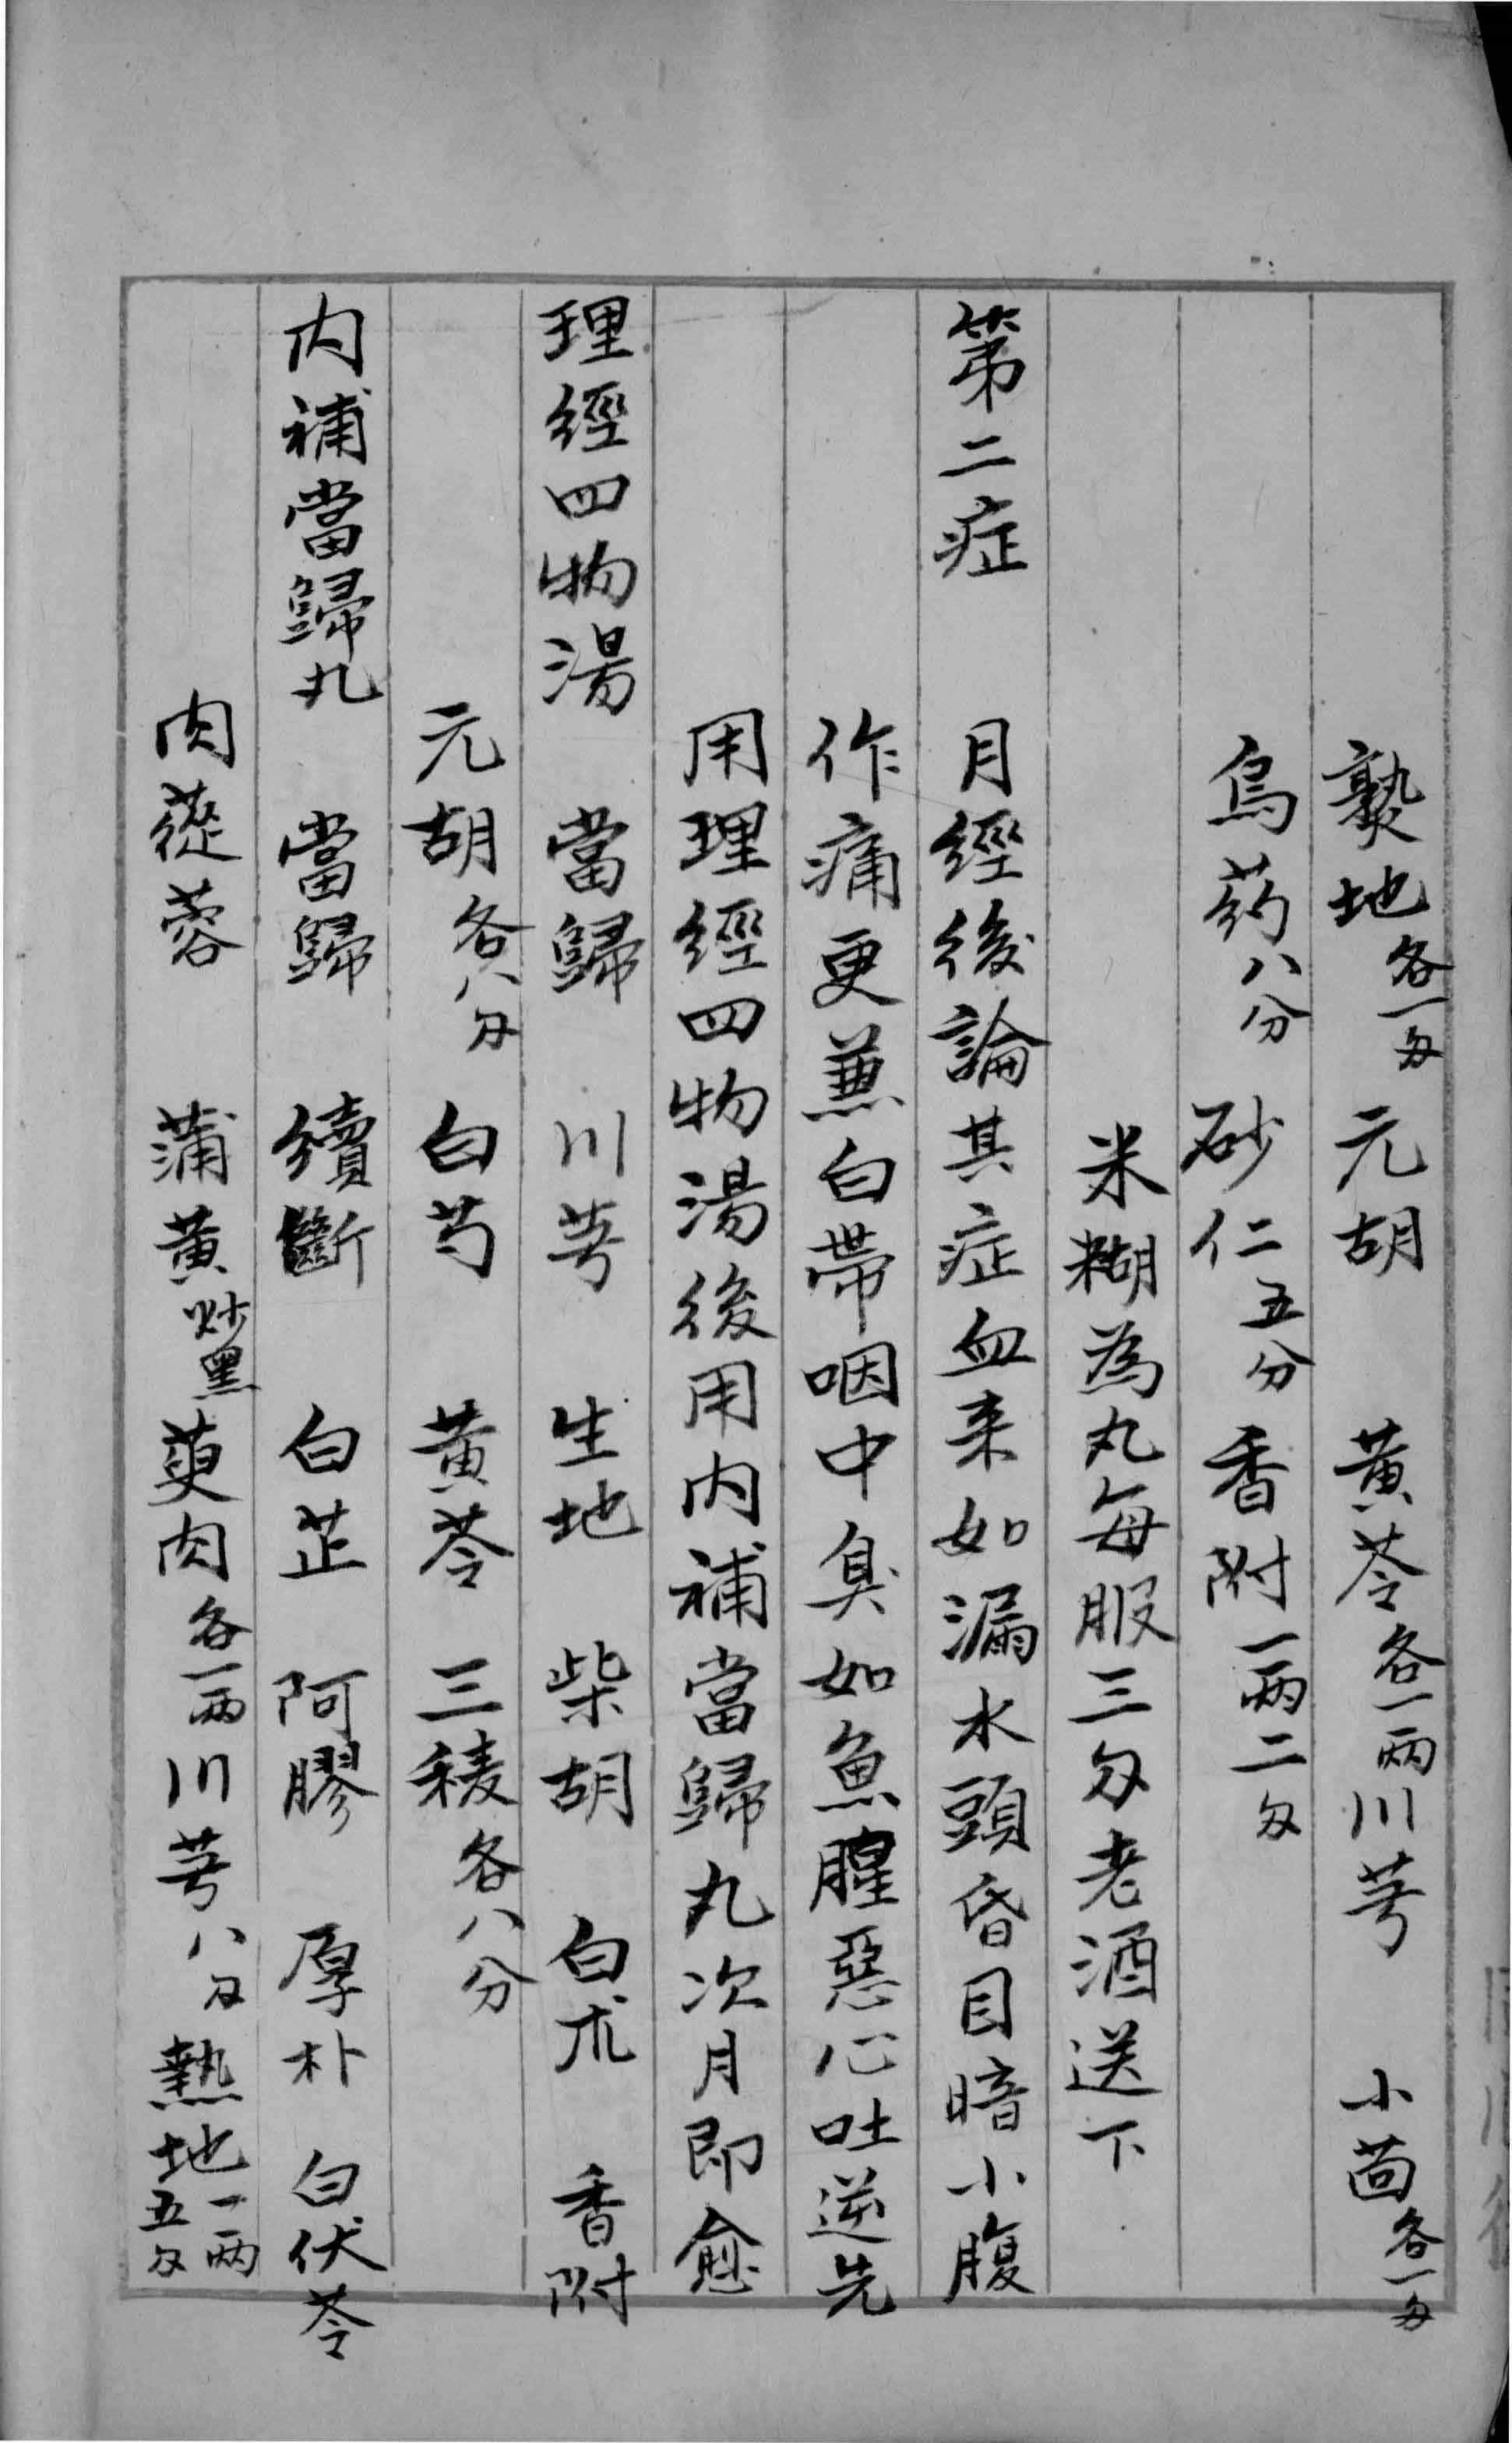 熟地各一匁 元胡 黃芩各一兩 川芎 小茴各一匁
烏药八分 砂仁五分 香附一兩二匁
米糊為丸每服三匁老酒送下
第二症 月經後論其症血来如漏水頭昏目暗小腹
作痛更兼白帶咽中臭如魚腥惡心吐逆先
用理經四物湯後用内補當歸丸次月即愈
理經四物湯 當歸 川芎 生地 柴胡 白朮 香附
元胡各八匁 白芍 黃芩 三稜各八分
内補當歸丸 當歸 續斷 白芷 阿膠 厚朴 白伏苓
肉蓯蓉 蒲黃炒黑 萸肉各一兩 川芎八匁 熱地一兩五匁